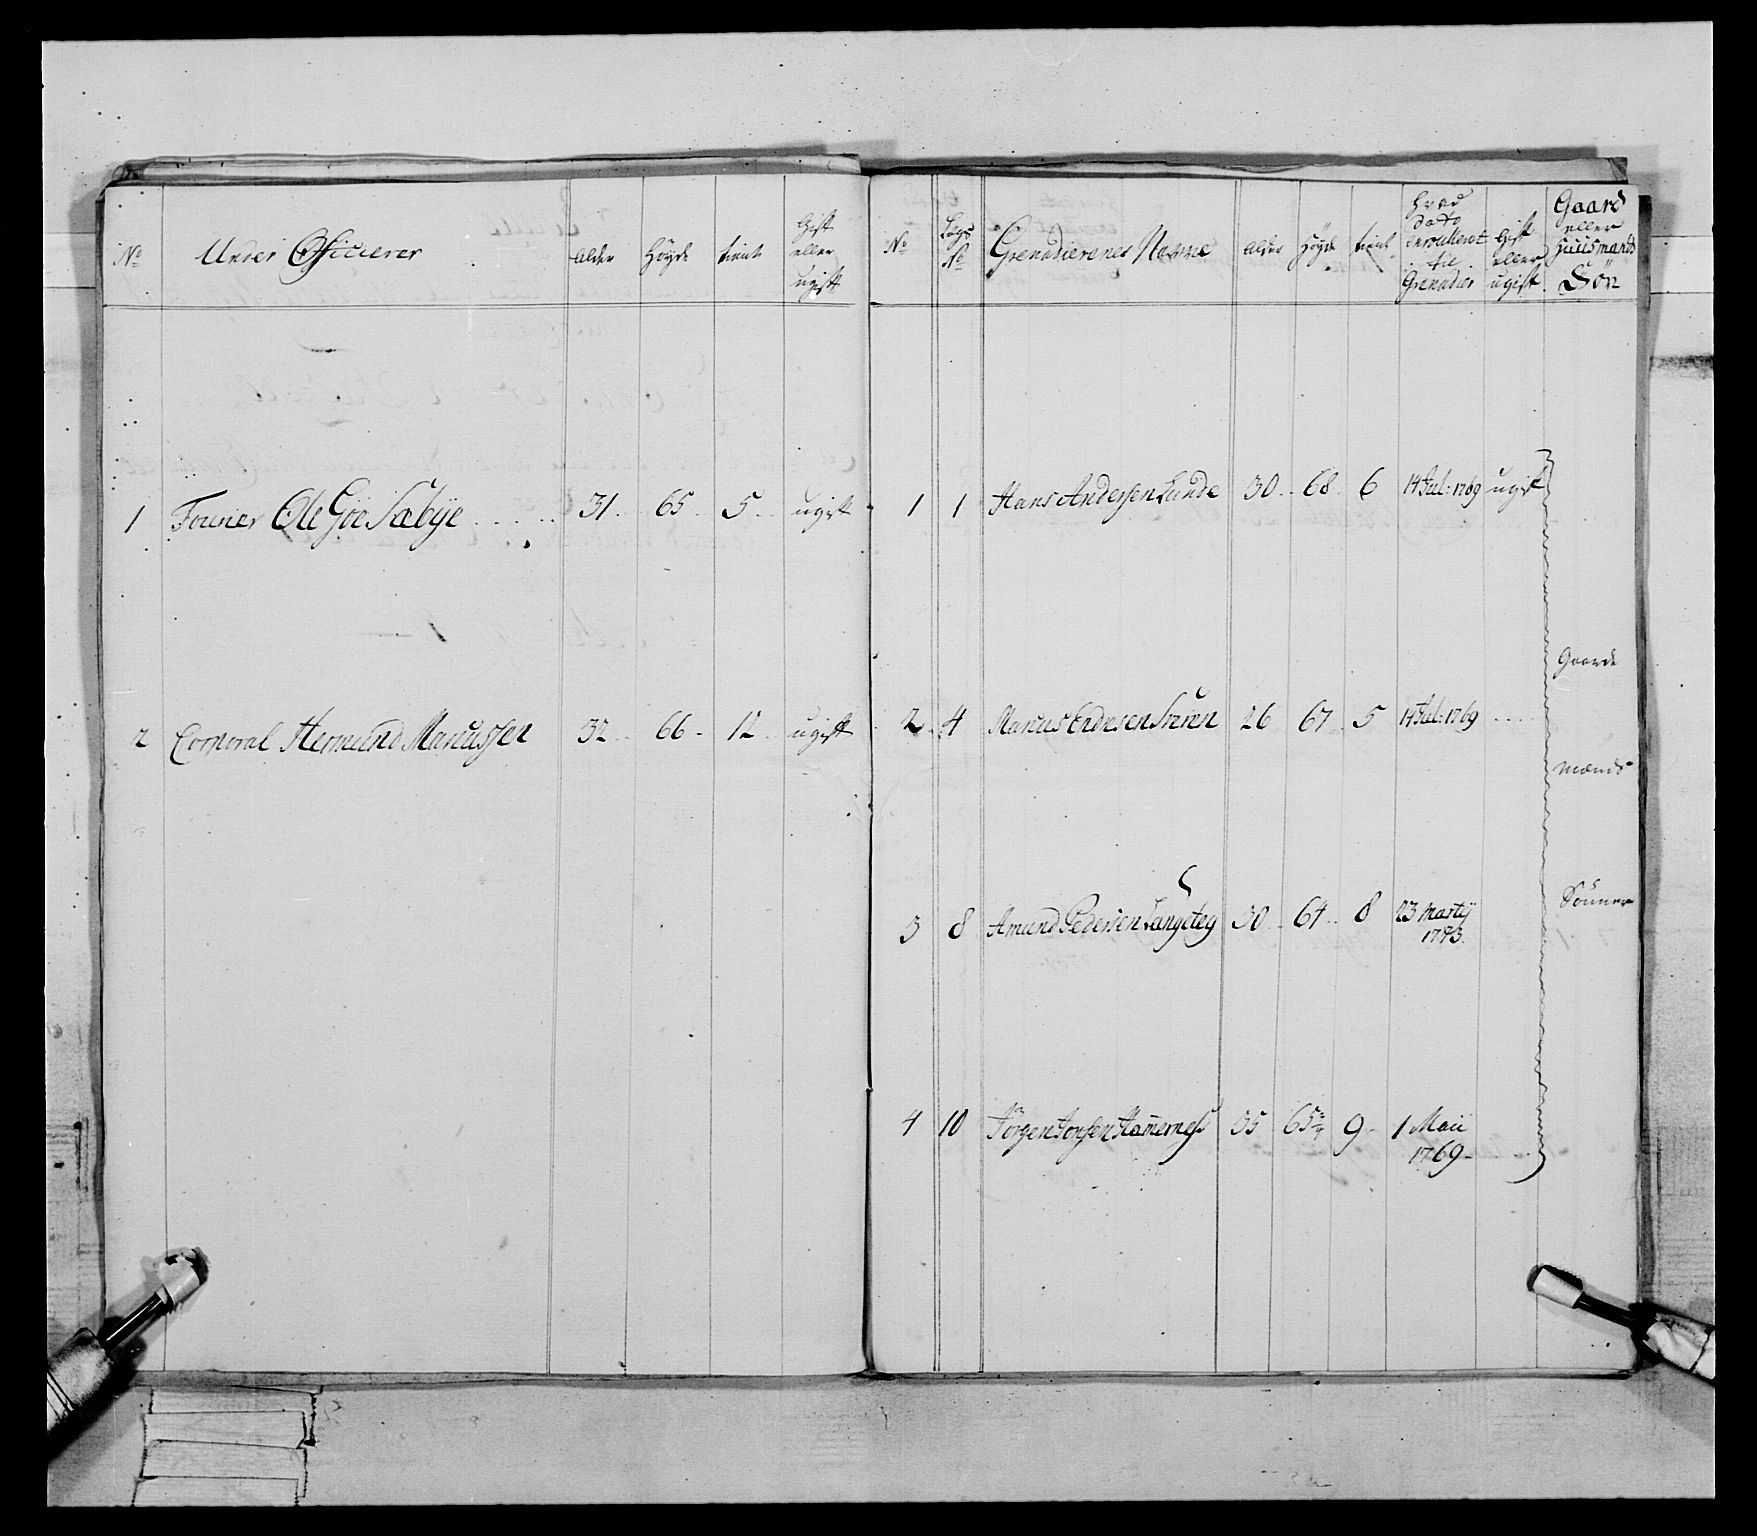 No Under Officierer Alder Höyde tient Gift eller ugift
1 Fourier Ole Göe Sæbÿe 31 65 5 ugift
2 Corporal Hermund Marcussen 32 66 12 ugift
No Lægs No Grenadierenes Navne Alder Höyde tient Hvad Dato enroullerit til Grenadier Gift eller ugift Gaard eller Huusmands Sön
1 1 Hans Andersen Lunde 30 68 6 14 Jul: 1769 ugift
Gaarde
2 4 Marcus Endresen 26 67 5 14 Jul: 1769
Mænds
3 8 Amund Pedersen Langeteg 30 64 8 23 Martÿ
1773
Sönner
4 10 Jörgen Jonsen 35 65 9 1 Maii
1769